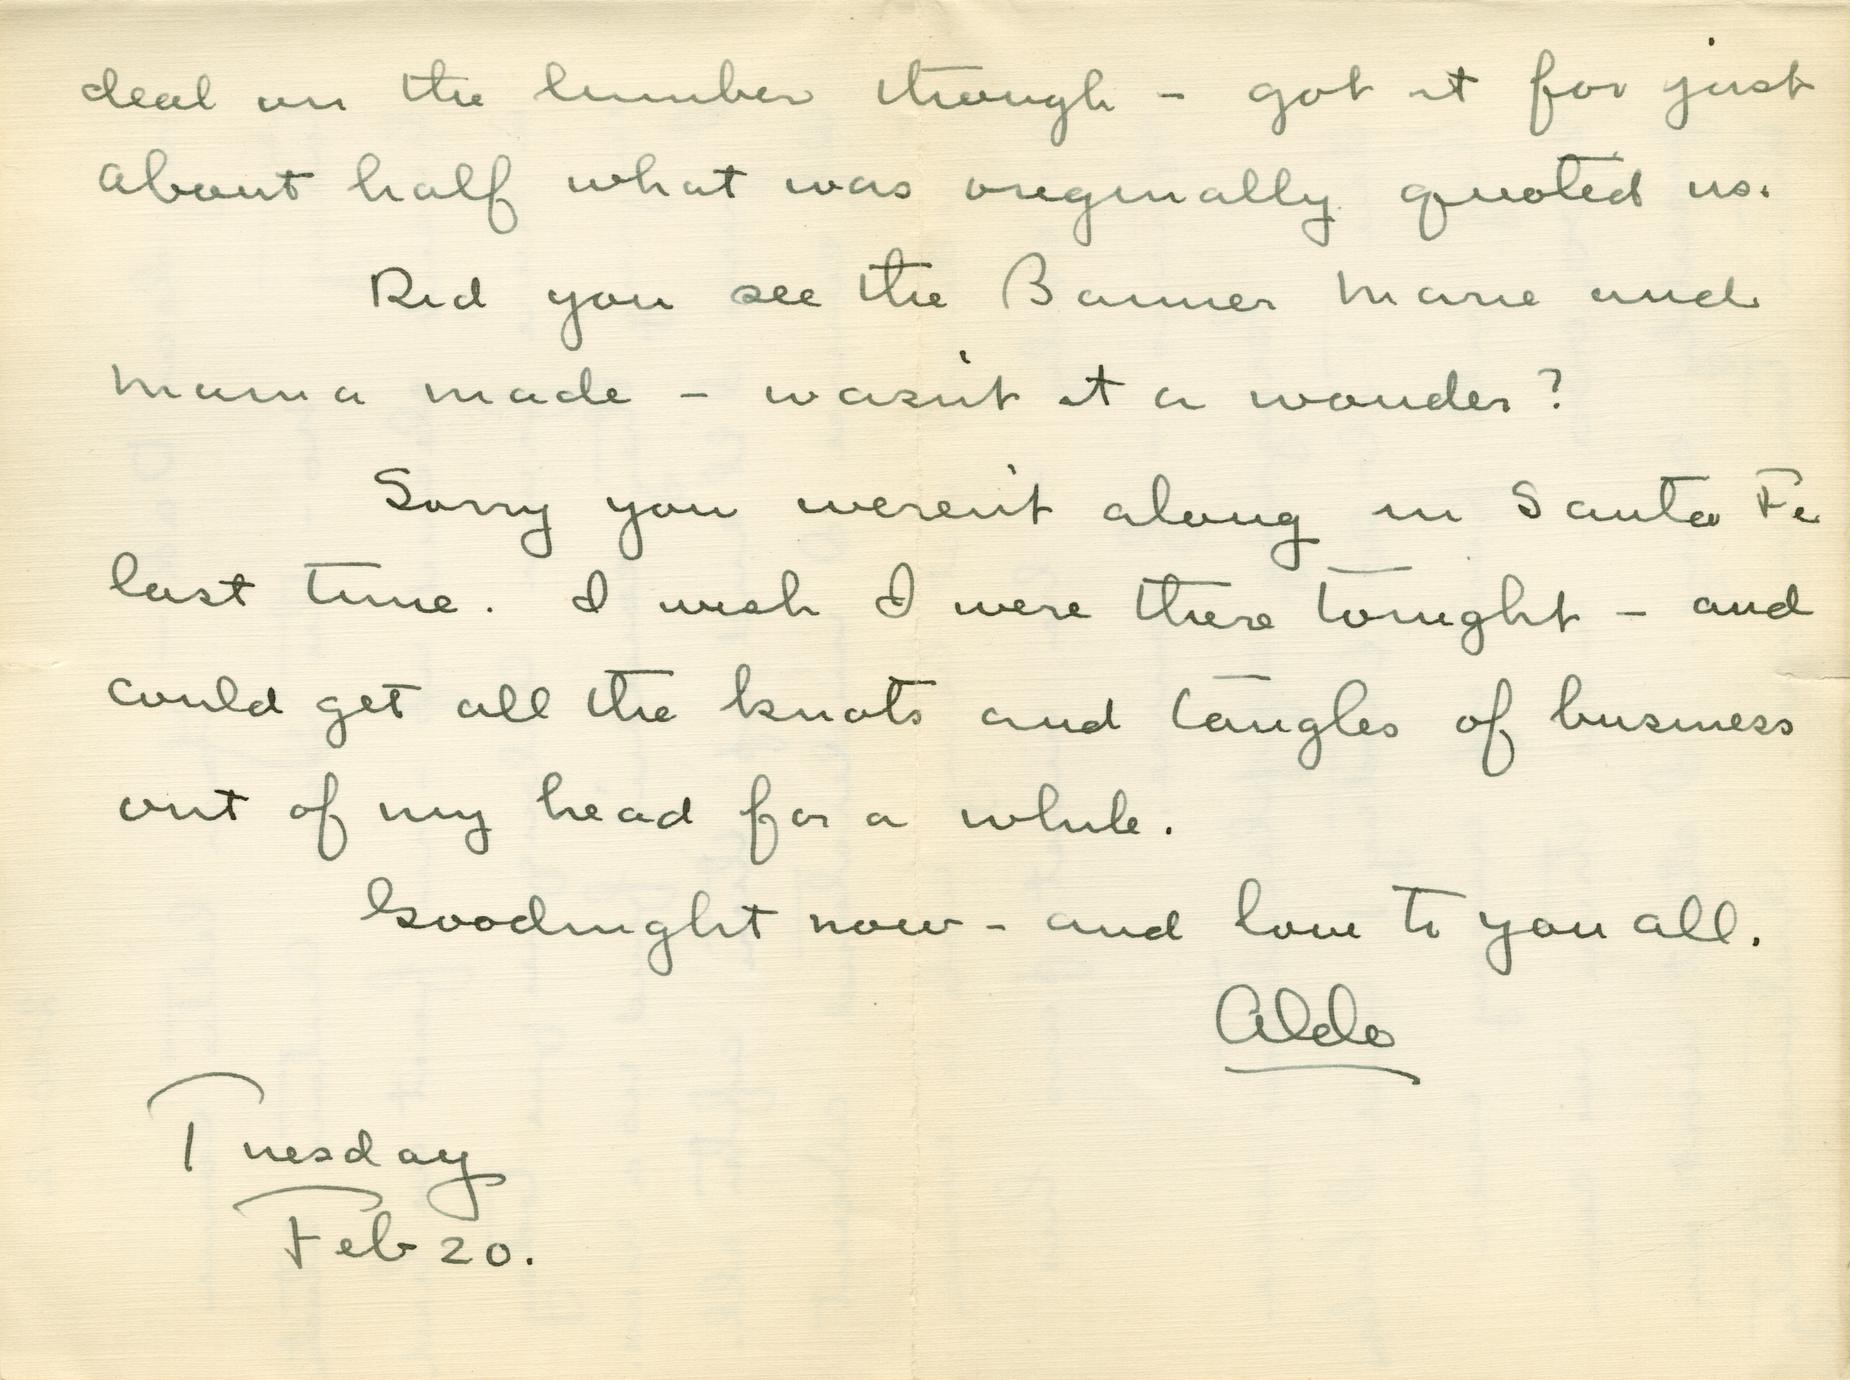 deal on the lumber though - got it for just
about half what was originally quoted us.
Did you see the Banner Marie and
Mama made - wasn't it a wonder?
Sorry you weren't along in Santa Fe
last time. I wish I were there tonight - and
could get all the knots and tangles of business
out of my head for a while.
Goodnight now - and love to you all.
Aldo
Tuesday
Feb 20.